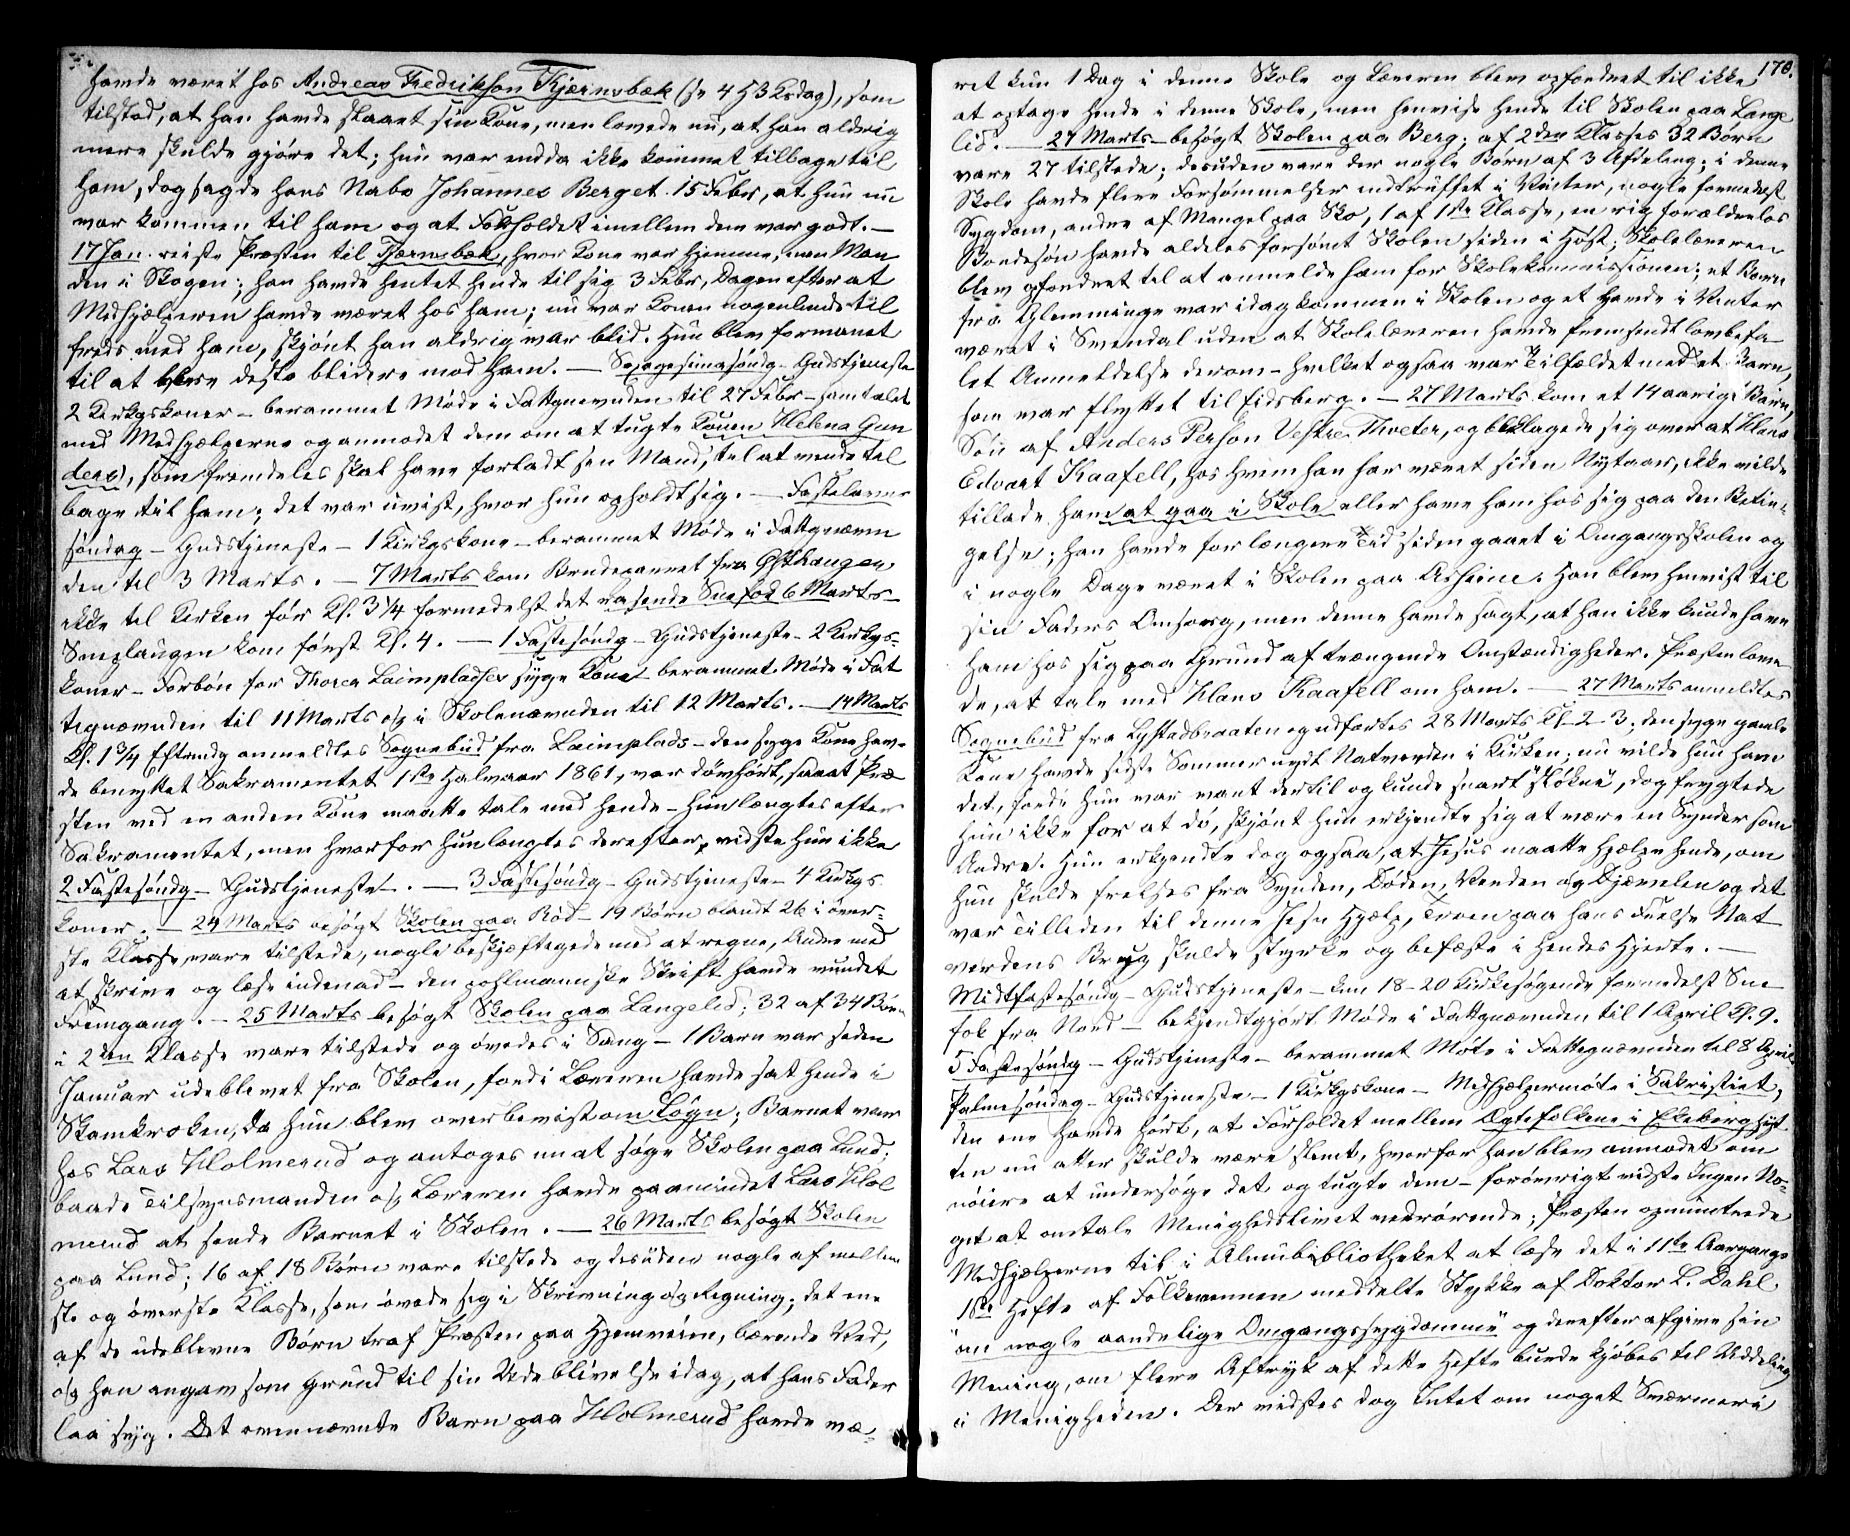 havde været hos Andreas Fredrikson Kjærnsbæk (se 4 H3Krsdag), som
tilstod, at han havde slaaet sin Kone, men lovede nu, at han aldrig
mere skulde gjöre det; hun var endda ikke kommet tilbage til
ham, dog sagde hans Nabo Johannes Berget 15 Febr, at hun nu
var kommen til ham og at Forholdet imellem dem var godt. —
17 Jan. reiste Præsten til Kjærnsbæk, hvor Kone var hjemme, men Man
den i Skogen; han havde hentet hende til sig 3 Febr, Dagen efter at
Medhjælperen havde været hos ham; nu var Konen nogenlunde til
freds med ham, skjönt han aldrig var blid. Hun blev formanet
til at blive desto blidere mod ham. — Sexagesimasöndg – Gudstjeneste
2 Kirkgskoner – berammet Möde i Fattgnævnden til 27 Febr – samtalet
med Medhjælperne og anmodet dem om at tugte Konen Helena Gun
ders), som fremdeles skal have forladt sin Mand, til at vende til
bage til ham; det var uvist, hvor hun opholdt sig. — Fastelavns
söndag – Gudstjeneste – 1 Kirkgskone – berammet Möde i Fattgnævn
den til 3 Marts. — 7 Marts kom Brudeparret fra Østhaugen
ikke til Kirken för Kl. 3¼ formedelst det rasende Snefok 6 Marts –
Sneplougen kom först Kl. 4. — 1 Fastesöndg – Gudstjeneste – 2 Kirkgs-
koner – Forbön for Thorer Laimpladses syge Kone – berammet Möde i Fat
tignævnden til 11 Marts og i Skolenævnden til 12 Marts. — 14 Marts
Kl. 1¾ Eftmdg anmeldtes Sognebud fra Laimplads – den syge Kone hav-
de benyttet Sakramentet 1ste Halvaar 1861, var dövhört, saaat Præ
sten ved en anden Kone maatte tale med hende – hun længtes efter
Sakramentet, men hvorfor hun længtes derefter, vidste hun ikke
2 Fastesöndg – Gudstjeneste –. — 3 Fastesöndg – Gudstjeneste – 4 Kirkgs
koner. — 24 Marts besögt Skolen paa Röd – 19 Börn blandt 26 i över-
ste Klasse, vare tilstede, nogle beskjæftigede med at regne, Andre med
at skrive og læse indenad – den pohlmannske Skrift havde vundet
Fremgang. — 25 Marts besögt Skolen paa Langelid; 32 af 34 Börn
i 2den Klasse vare tilstede og övedes i Sang – 1 Barn var siden
Januar udeblevet fra Skolen, fordi Læreren havde sat hende i
Skamkroken, da hun blev overbevist om Lögn; Barnet var
hos Lars Holmerud og antoges nu at söge Skolen paa Lund;
baade Tilsynsmanden og Læreren havde paamindet Lars Hol
merud at sende Barnet i Skolen. — 26 Marts besögt Skolen
paa Lund; 16 af 18 Börn vare tilstede og desuden nogle af mellem
ste og överste Klasse, som övede sig i Skrivning og Regning; det ene
af de udeblevne Börn traf Præsten paa Hjemveien, bærende Ved,
og han angav som Grund til sin Udeblivelse idag, at hans Fader
laa syg. Det ovennævnte Barn paa Holmerud havde væ-
178.
ret kun 1 Dag i denne Skole og Læreren blev opfordret til ikke
at optage hende i denne Skole, men henvise hende til Skolen paa Lange
lid. — 27 Marts – besögt Skolen paa Berg; af 2den Klasses 32 Börn
vare 27 tilstede; desuden vare der nogle Börn af 3 Afdeling; i denne
Skole havde flere Forsömmelser indtruffet i Vinter, nogle formedelst
Sygdom, andre af Mangel paa Sko, 1 af 1ste Klasse, en rig forældrelös
Bondesön havde aldeles forsömt Skolen siden i Höst; Skolelæreren
blev opfordret til at anmelde ham for Skolekommissionen; et Barn
fra Glemminge var idag kommen i Skolen og et havde i Vinter
været i Svendal uden at Skolelæreren havde fremsendt lovbefa-
let Anmeldelse derom – hvilket ogsaa var Tilfældet med et Barn,
som var flyttet til Eidsberg. — 27 Marts kom et 14 aarigt Barn,
Sön af Anders Person Vestre Tveter, og beklagede sig over at Hans
Edvart Kaafell, hos hvem han har været siden Nytaar, ikke vilde
tillade ham at gaa i Skole eller have ham hos sig paa den Betin-
gelse; han havde for længere Tid siden gaaet i Omgangsskolen og
i nogle Dage været i Skolen paa Asheim. Han blev henvist til
sin Faders Omsorg, men denne havde sagt, at han ikke kunde have
ham hos sig paa Grund af trængende Omstændigheder. Præsten love
de, at tale med Hans Kaafell om ham. — 27 Marts anmeldtes
Sognebud fra Lystadbraaten og udfortes 28 Marts Kl. 2–3; den syge gamle
Kone havde sidste Sommer nydt Nadverden i Kirken; nu vilde hun have
det, fordi hun var vant dertil og kunde snart "slökne", dog frygtede
hun ikke for at dö, skjönt hun erkjendte sig at være en Synder som
Andre. Hun erkjendte dog ogsaa, at Jesus maatte hjælpe hende, om
hun skulde frelses fra Synden, Döden, Verden og Djævelen og det
var Tilliden til denne Jesu Hjælp, Troen paa hans Frelse Nat
verdens Brug skulde styrke og befæste i hendes Hjerte. —
Midtfastesöndg – Gudstjeneste – kun 18–20 Kirkesögende formedelst Sne
fok fra Nord – bekjendtgjört Möde i Fattgnævnden til 1 April Kl. 9.
5 Fastesöndg – Gudstjeneste – berammet Möte i Fattignævnden til 8 April
Palmesöndag – Gudstjeneste – 1 Kirkgskone – Medhjælpermöte i Sakristiet,
den ene havde hört, at Forholdet mellem Ægtefolkene i Ekeberghyt
ten nu atter skulde være slemt, hvorfor han blev anmodet om
nöiere at undersöge det og tugte dem – forövrigt vidste Ingen No-
get at omtale Menighedslivet vedrörende; Præsten opmuntrede
Medhjælperne til i Almubibliotheket at læse det i 11te Aargangs
1ste Hefte af Folkevennen meddelte Stykke af Doktor L. Dahl
"om nogle aandelige Omgangssygdomme" og derefter afgive sin
Mening, om flere Aftryk af dette Hefte burde kjöbes til Uddeling
i Menigheden. Der vidstes dog Intet om noget Sværmeri